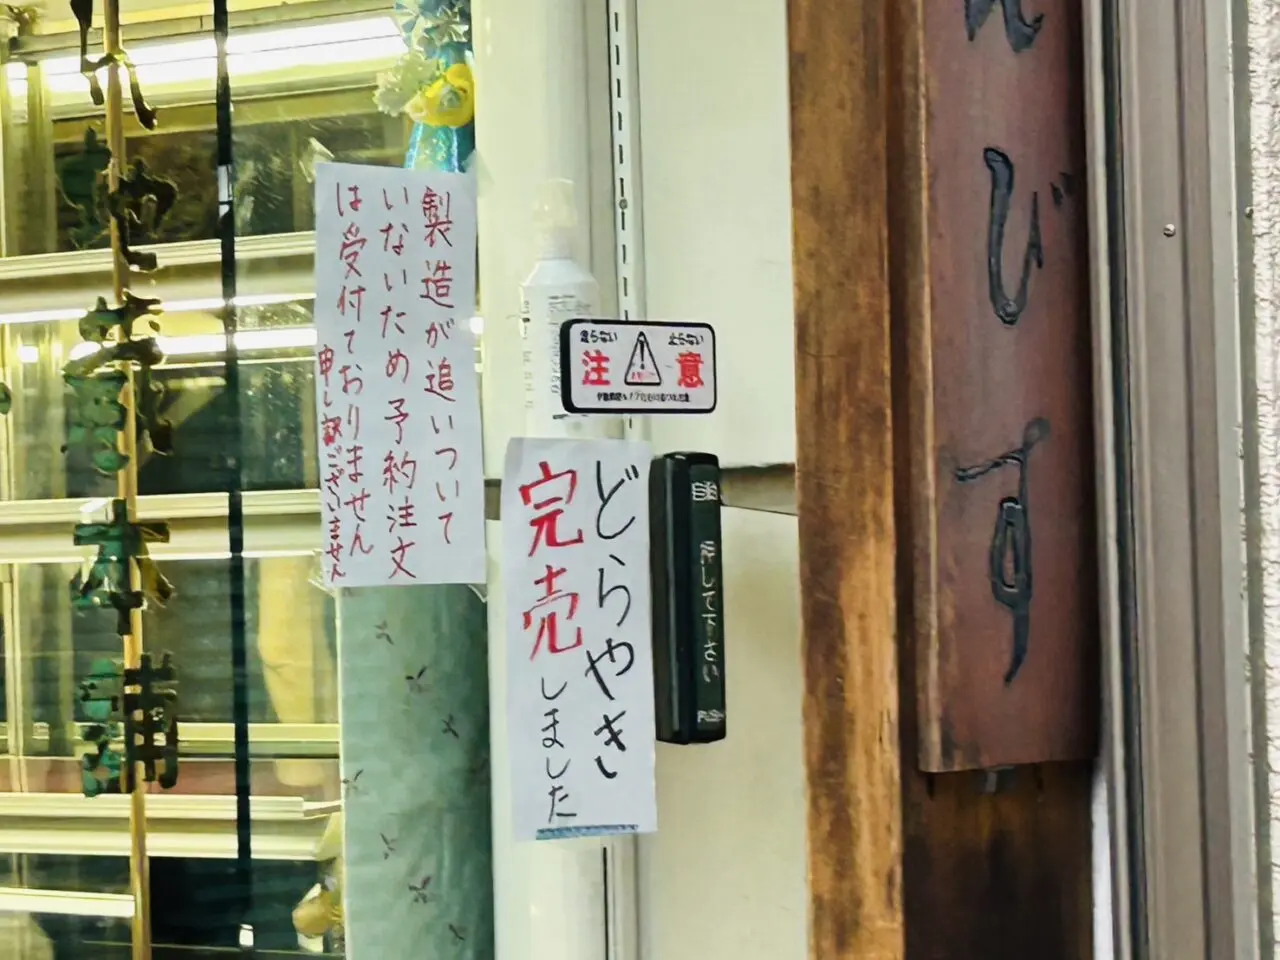 製造が追いついて
いないため予約注文
は受付ておりません
申し訳ございません
どらやき
完売
しました
注意
止らない
自動
押して下さい
PUSH
びす